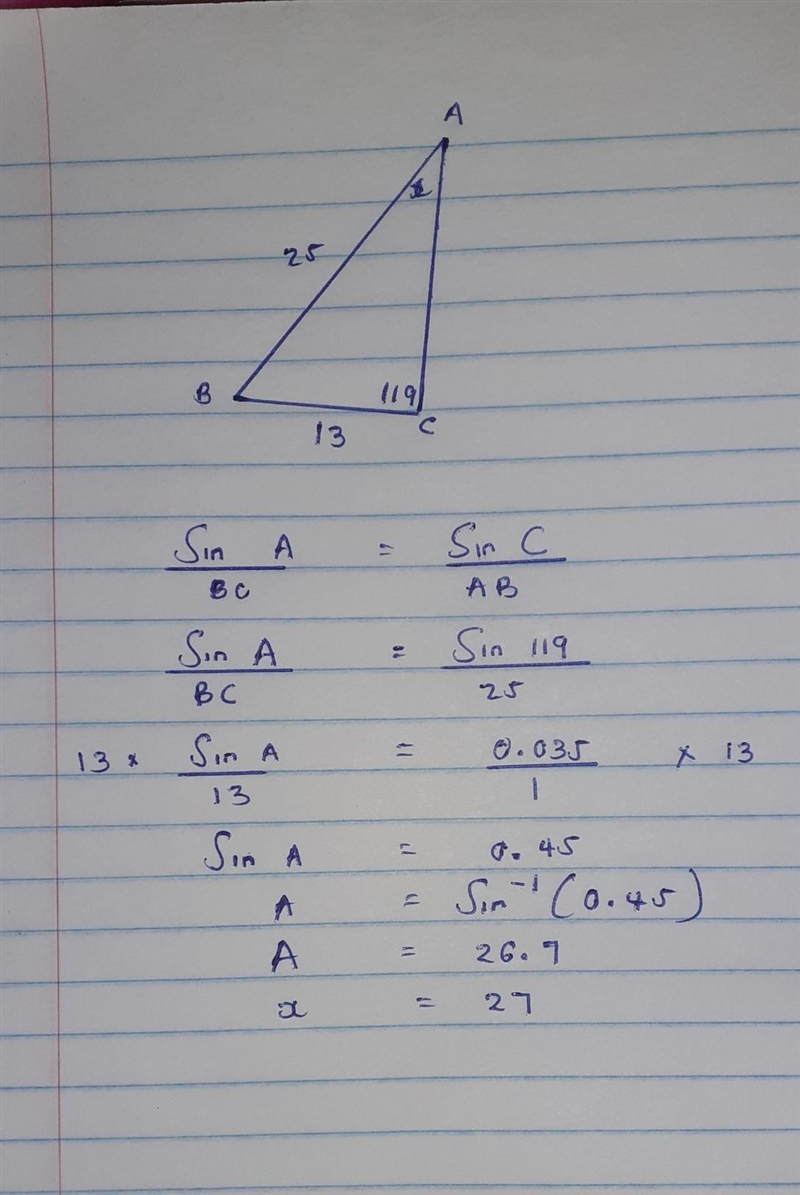 A
x
25
B
119
C
13
Sin A = Sin C
BC AB
Sin A = Sin 119
BC 25
13 × Sin A = 0.035 × 13
13 1
Sin A = 0.45
A = Sin⁻¹ (0.45)
A = 26.7
x = 27